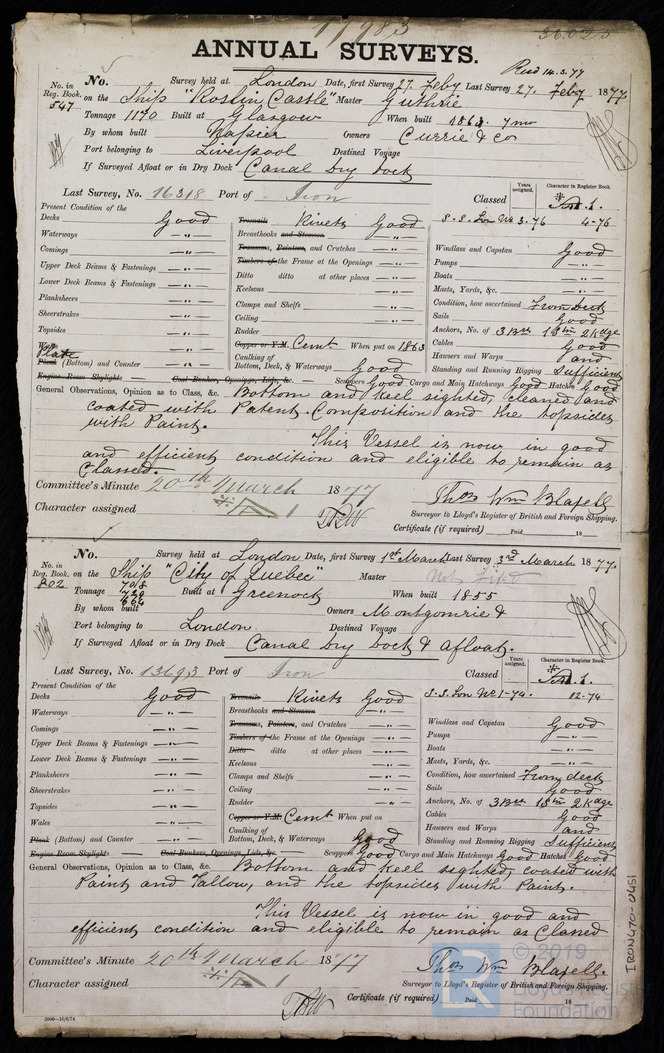 11983
36.025
ANNUAL SURVEYS.
Recd 14.3.77
No. in Reg. Book. 547
No. Survey held at London Date, first Survey 27. Feby Last Survey 27. Feby 1877
on the Ship "Roslin Castle" Master Guthrie
Tonnage 1190 Built at Glasgow When built 1863. 7mo
By whom built Napier Owners Currie & Co
Port belonging to Liverpool Destined Voyage
If Surveyed Afloat or in Dry Dock Canal Dry Dock
Last Survey, No. 16318 Port of Iron Classed Years assigned. Character in Register Book.
S.S. Lon No 3-76 4-76
Present Condition of the
Decks Good Treenails Rivets Good
Waterways —„— Breasthooks and Stemson —„— Windlass and Capstan Good
Comings —„— Transoms, Pointers, and Crutches —„— Pumps —„—
Upper Deck Beams & Fastenings —„— Timbers of the Frame at the Openings —„— Boats —„—
Lower Deck Beams & Fastenings —„— Ditto ditto at other places —„— Masts, Yards, &c. —„—
Planksheers —„— Keelsons —„— Condition, how ascertained From deck
Sheerstrakes —„— Clamps and Shelfs —„— Sails Good
Topsides —„— Ceiling —„— Anchors, No. of 3 Bow 1 Stm 2 Kedge
Wales —„— Rudder —„— Cables Good
Plate Copper or Y.M. Cemt When put on 1863 Hawsers and Warps and
Plank (Bottom) and Counter —„— Caulking of Bottom, Deck, & Waterways Good Standing and Running Rigging Sufficient
Engine Room Skylights — Coal Bunker, Openings, Lids, &c. — Scuppers Good Cargo and Main Hatchways Good Hatches Good
General Observations, Opinion as to Class, &c. Bottom and Keel sighted, cleaned and
coated with Patent Composition and the topsides
with Paint.
This Vessel is now in good
and efficient condition and eligible to remain as
Classed.
Committee's Minute 20th March 1877
Thos Wm Blafell
Surveyor to Lloyd's Register of British and Foreign Shipping.
Character assigned
Certificate (if required) Paid 18
No. in Reg. Book. 202
No. Survey held at London Date, first Survey 1st March Last Survey 3rd March 1877.
on the Ship "City of Quebec" Master Not Fixed
Tonnage 708 729 664 Built at Greenock When built 1855
By whom built Owners Montgomrie &
Port belonging to London. Destined Voyage
If Surveyed Afloat or in Dry Dock Canal Dry Dock & afloat.
Last Survey, No. 13693 Port of Iron Classed Years assigned. Character in Register Book.
S.S. Lon No 1-74. 12-74
Present Condition of the
Decks Good Treenails Rivets Good
Waterways —„— Breasthooks and Stemson —„— Windlass and Capstan Good
Comings —„— Transoms, Pointers, and Crutches —„— Pumps —„—
Upper Deck Beams & Fastenings —„— Timbers of the Frame at the Openings —„— Boats —„—
Lower Deck Beams & Fastenings —„— Ditto ditto at other places —„— Masts, Yards, &c. —„—
Planksheers —„— Keelsons —„— Condition, how ascertained From deck
Sheerstrakes —„— Clamps and Shelfs —„— Sails Good
Topsides —„— Ceiling —„— Anchors, No. of 3 Bow 1 Stm 2 Kedge
Wales —„— Rudder —„— Cables Good
Copper or Y.M. Cemt When put on Hawsers and Warps and
Plank (Bottom) and Counter —„— Caulking of Bottom, Deck, & Waterways Good Standing and Running Rigging Sufficient
Engine Room Skylights — Coal Bunkers, Openings, Lids, &c. — Scuppers Good Cargo and Main Hatchways Good Hatches Good
General Observations, Opinion as to Class, &c. Bottom and Keel sighted, coated with
Paint and Tallow, and the topsides with Paint.
This Vessel is now in good and
efficient condition and eligible to remain as Classed
Committee's Minute 20th March 1877
Thos Wm Blafell.
Surveyor to Lloyd's Register of British and Foreign Shipping.
Character assigned
Certificate (if required) Paid 18
IRON470-0451
© 2019
Lloyd's Register
Foundation